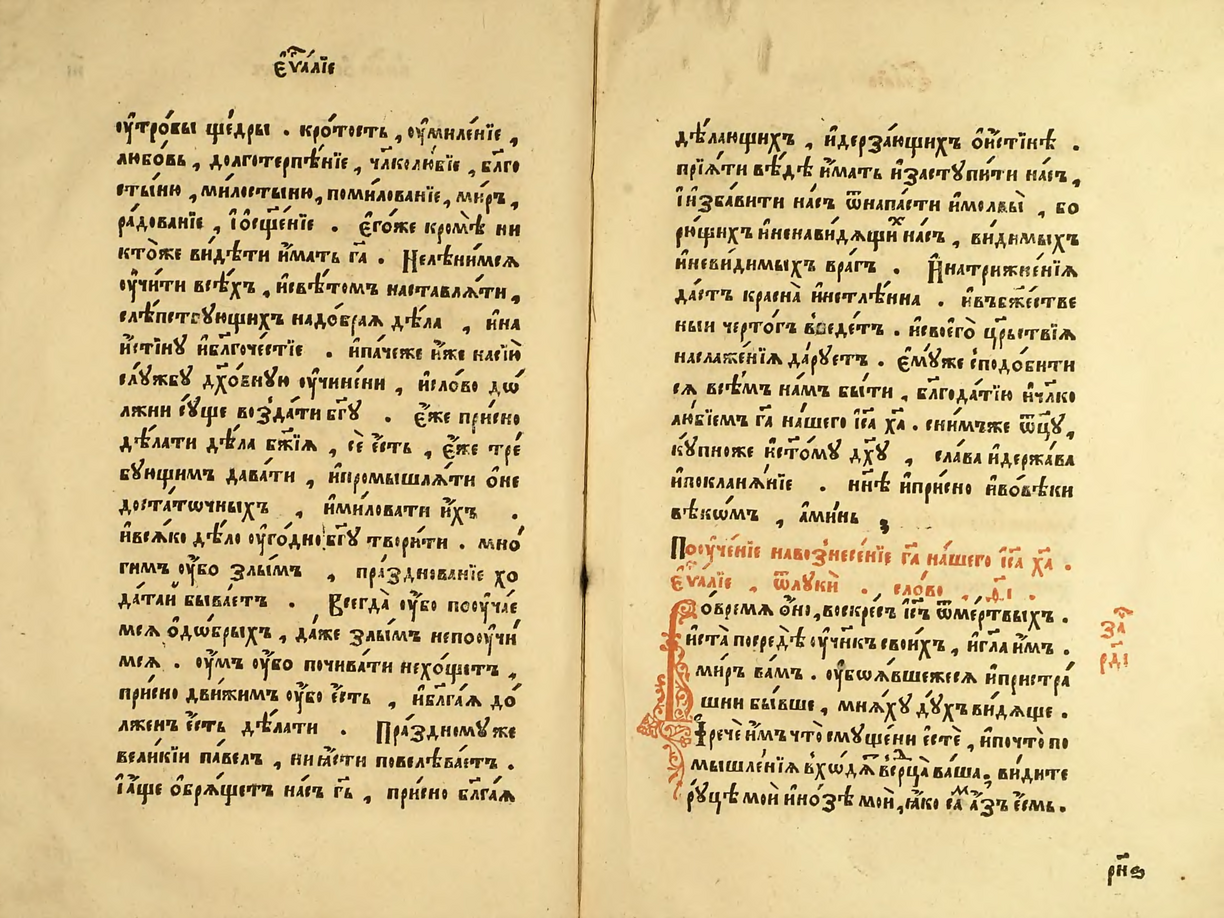 є҆ѵⷢ҇алїе
оу҆трѡ́бы ще́дры . кро́тость , оу҆миле́нїе ,
любо́вь , долготерпѣ́нїе , чл҃колю́бїе , бл҃го
стыню , милостыню , помилованїе , ми́ръ ,
ра́дованїе , і҆ ѻ҆сщ҃е́нїе . є҆го́же кромѣ̀ ни
кто̀же ви́дѣти и҆́мать гⷭ҇а . Нелѣни́мсѧ
оу҆чи́ти всѣ́хъ , и҆свѣ́томъ наставлѧ́ти ,
слѣ́пствующихъ надо́браѧ дѣ́ла , и҆на
и҆́стінꙋ и҆бл҃гоче́стїе . и҆па́чеже и҆̀же насїю̀
слꙋ́жбꙋ дх҃о́внꙋю оу҆чине́ни , и҆сло́во дѡ́
лжни сꙋ́ще возда́ти бг҃ꙋ . є҆́же при́сно
дѣ́лати дѣ́ла бж҃їѧ , сѐ є҆́сть , є҆́же тре́
бꙋющимъ дава́ти , и҆промышлѧ́ти ѻ҆не
доста́точныхъ , и҆ми́ловати и҆́хъ .
и҆всѧ́ко дѣ́ло оу҆го́дно бг҃ꙋ твори́ти . мно́
гимъ оу҆́бо злы́мъ , пра́зднованїе хо
да́таи быва́етъ . Всегда̀ оу҆́бо пооуча́е
мсѧ ѻ҆до́брыхъ , да́же злы́мъ непооучи́
мсѧ . оу҆́мъ оу҆́бо почива́ти нехо́щетъ ,
при́сно дви́жимъ оу҆́бо є҆́сть , и҆бл҃га́ѧ до́
лженъ є҆́сть дѣ́лати . Пра́здномꙋ же
вели́кїи па́велъ , ниꙗ҆́сти повелѣва́етъ .
І҆а҆́ще ѻ҆брѧ́щетъ на́съ гь҃ , при́сно бл҃га́ѧ
дѣ́лающихъ , и҆дерза́ющихъ ѻ҆и҆́стінѣ .
прїѧ́ти вѣ́дѣ и҆́мать и҆застꙋпи́ти на́съ ,
і҆и҆зба́вити на́съ ѿнапа́сти и҆молвы̀ , бо
рю́щихъ и҆ненави́дѧщиⷯ на́съ , ви́димыхъ
и҆неви́димыхъ вра́гъ . И҆натриж҃не́нїѧ
да́стъ кра́сна и҆нетлѣ́нна . и҆въбж҃е́стве
ныи черто́гъ введе́тъ . и҆своего̀ црⷭ҇твїѧ
наслаже́нїѧ да́рꙋетъ . є҆мꙋ́же сподо́бити
сѧ всѣ́мъ на́мъ бы́ти , бл҃года́тїю и҆чл҃ко
лю́бїемъ гⷭ҇а на́шего і҆с҃а х҃а . сни́мъже ѿц҃ꙋ ,
кꙋ́пноже и҆ст҃о́мꙋ дх҃ꙋ , сла́ва и҆держа́ва
и҆покланѧ́нїе . нн҃ѣ и҆при́сно и҆во́вѣки
вѣ́кѡмъ , а҆ми́нь
Пооуче́нїе навознесе́нїе гⷭ҇а на́шего і҆с҃а х҃а .
є҆ѵⷢ҇алїе , ѿлꙋкѝ . сло́во , м҃і .
Во́времѧ ѻ҆́но , воскре́съ і҆с҃ъ ѿме́ртвыхъ .
и҆ста̀ посредѣ̀ оу҆чн҃къ свои́хъ , и҆гл҃а и҆́мъ .
ми́ръ ва́мъ . оу҆боѧ́вшежесѧ и҆пристра́
шни бы́вше , мнѧ́хꙋ дꙋ́хъ ви́дѧще .
И҆речѐ и҆́мъ что̀ смꙋще́ни є҆стѐ , и҆почто̀ по
мышле́нїѧ вхо́дѧⷮ всерⷣца̀ ва́ша , ви́дите
рꙋ́цѣ мои̑ и҆но́зѣ мои̑ , ꙗ҆́ко саⷨ а҆́зъ є҆́смь .
заⷱ҇
рд҃і
рн҃з